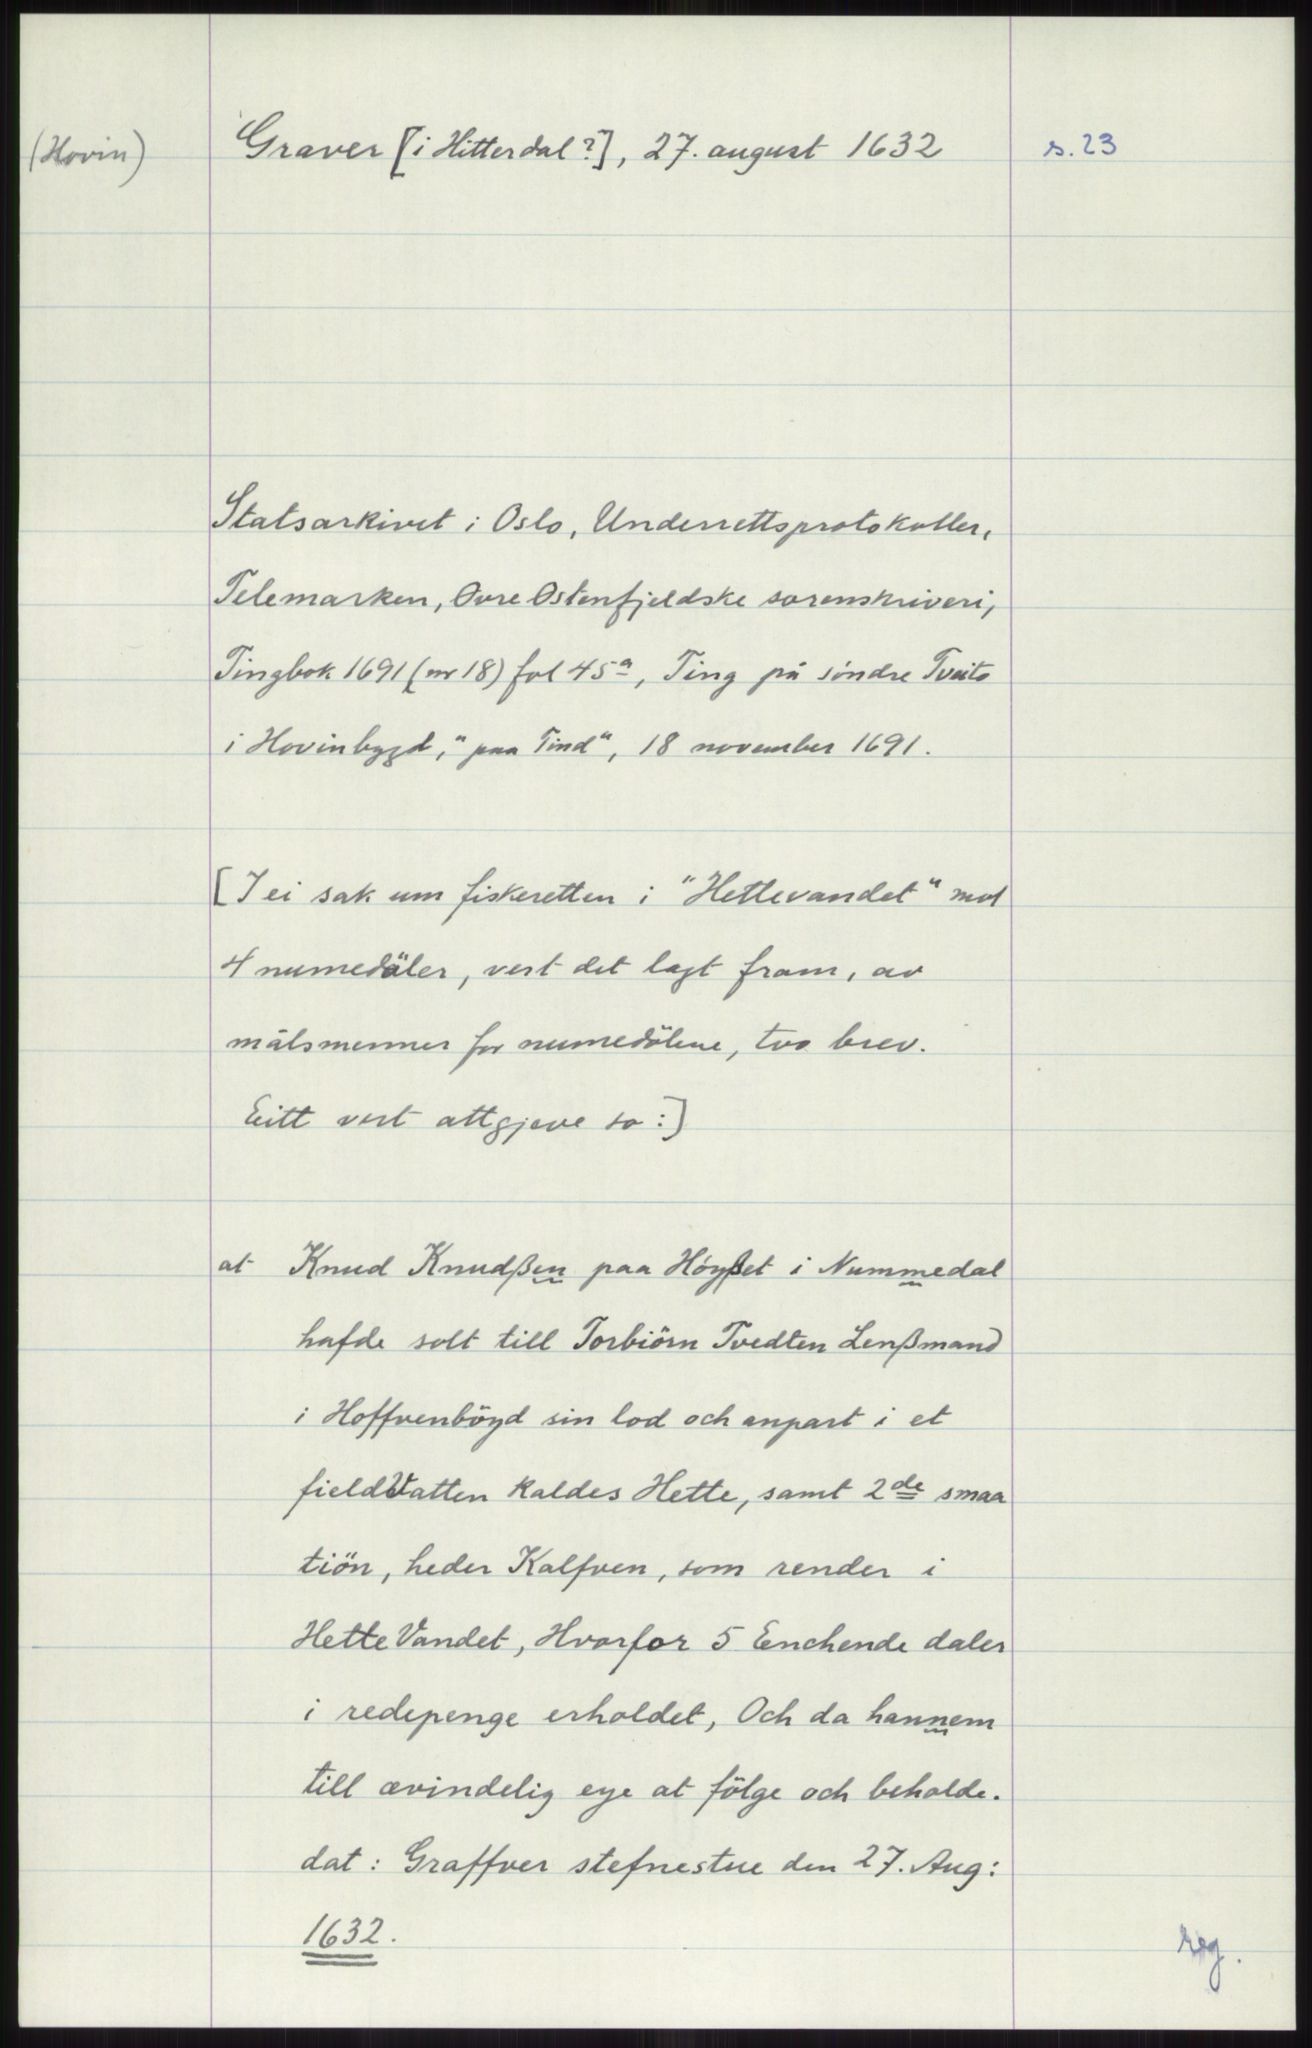 (Hovin) Graver [i Hitterdal?], 27. august 1632 s. 23
Statsarkivet i Oslo, Underrettsprotokoller,
Telemarken, Øvre Østenfjeldske sorenskriveri,
Tingbok 1691 (nr 18) fol 45ª, Ting på söndre Tveito
i Hovinbygd, "paa Tind", 18 november 1691.
[I ei sak um fiskeretten i "Hettevandet" mot
4 numedäler, vert det lagt fram, av
målsmenner for numedölene, two brev.
Eitt vert attgjeve so:]
at Knud Knudßen paa Höyßet i Nummedal
hafde solt till Torbiörn Tvedten Lenßmand
i Hoffvenböyd sin lod och anpart i et
fieldVatten kaldes Hette, samt 2de smaa
tiön, heder Kalfven, som render i
Hette Vandet, Hvorfor 5 Enchende daler
i redepenge erholdet, Och da hannem
till ævindelig eye at fölge och beholde.
dat: Graffver stefnestue den 27. Aug:
1632.
reg.